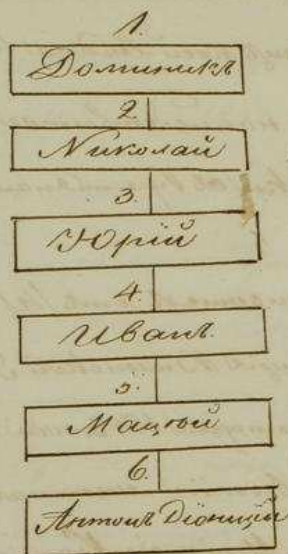 1.
Доминикъ
2
Николай
3
Юрій
4
Иванъ.
5.
Мацѣй
6.
Антонъ Діонизій